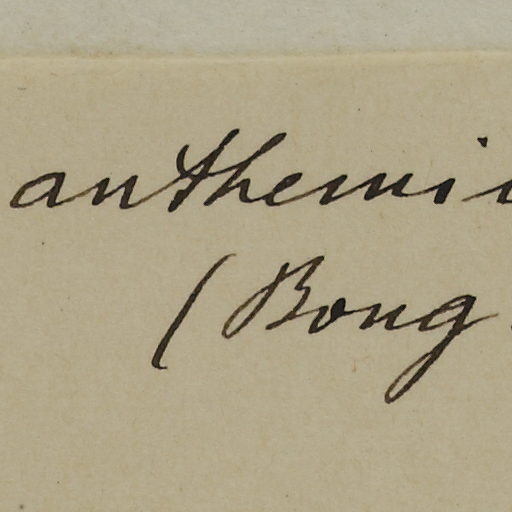 anthemi
(Bong.